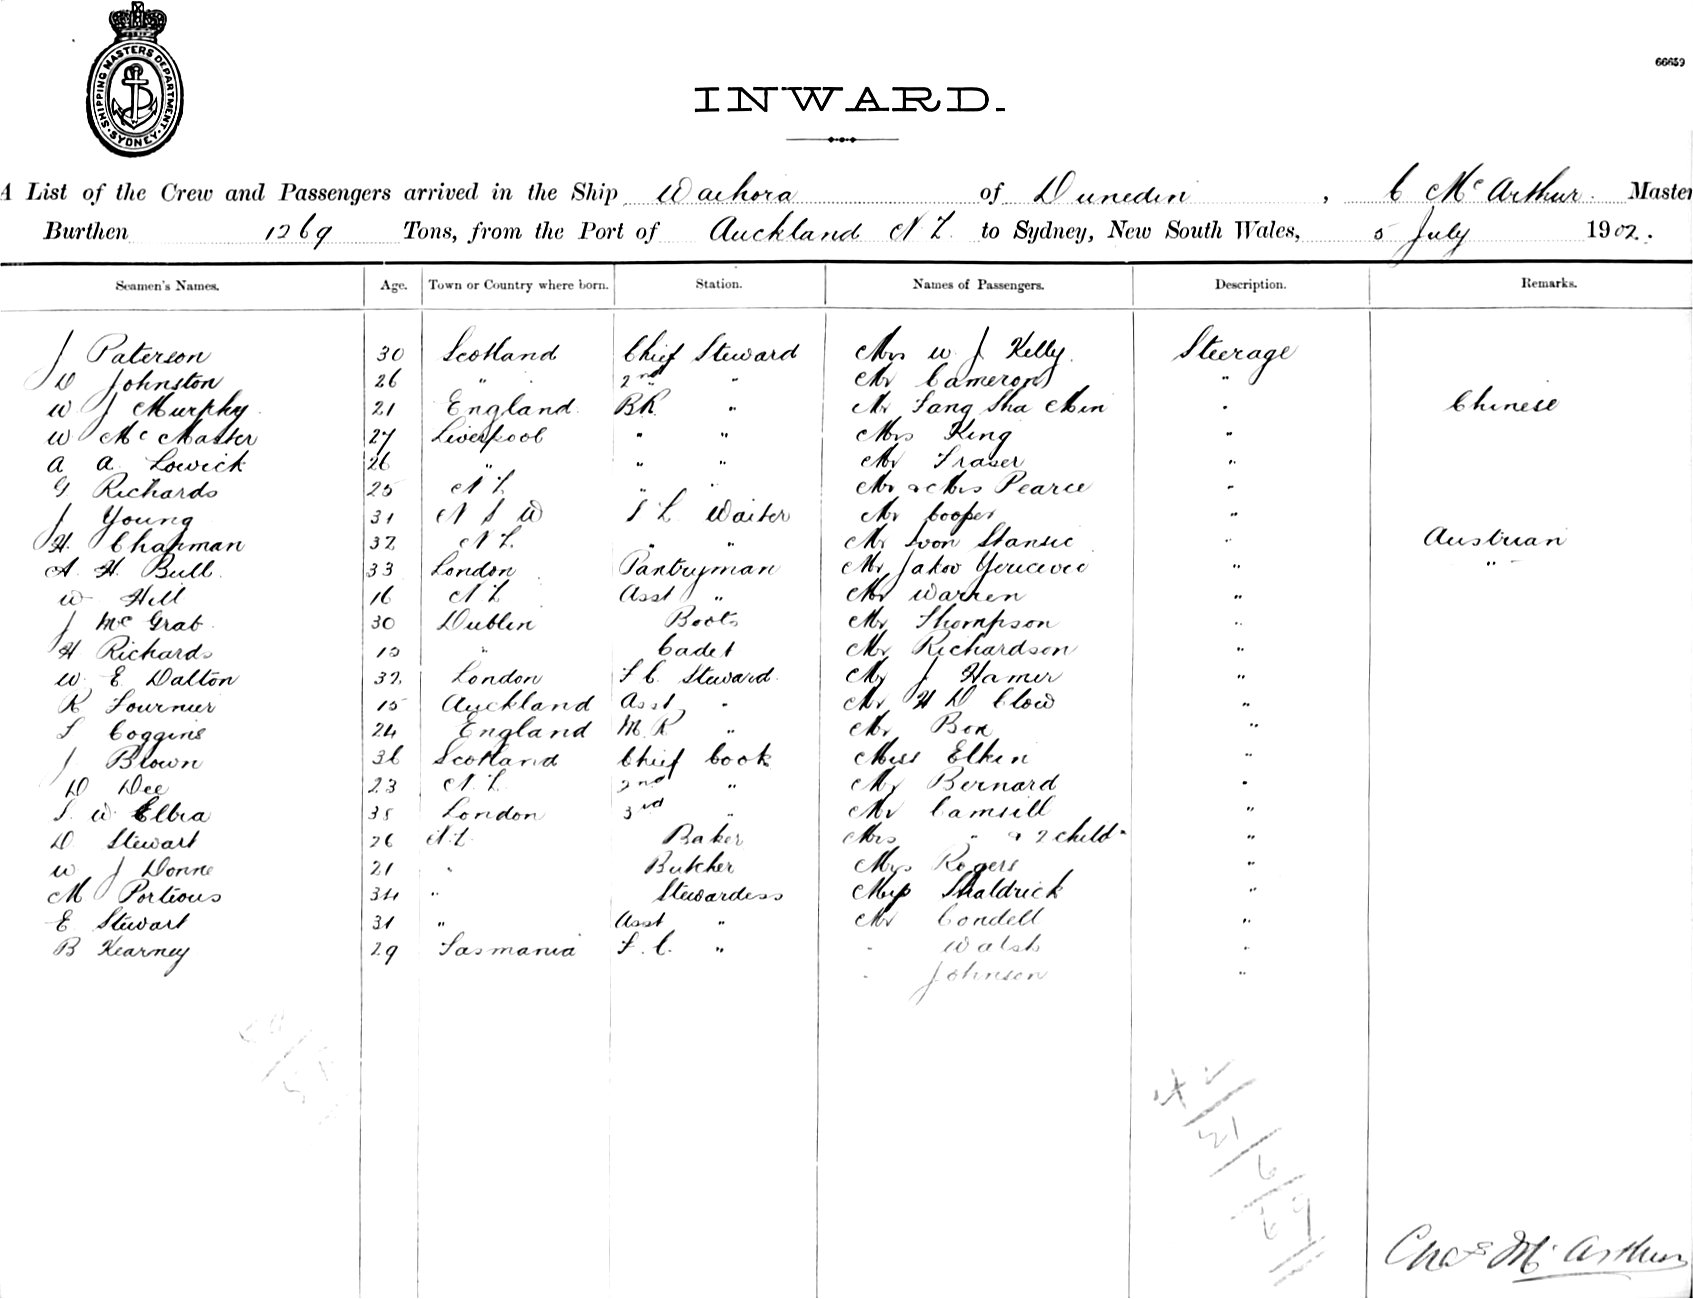 SHIPPING MASTERS DEPARTMENT
SYDNEY
66659
INWARD.
A List of the Crew and Passengers arrived in the Ship Waihora of Dunedin, C McArthur. Master
Burthen 1269 Tons, from the Port of Auckland N Z. to Sydney, New South Wales, 5 July 1902.
Seamen's Names. Age. Town or Country where born. Station. Names of Passengers. Description. Remarks.
J Paterson 30 Scotland Chief Steward Mrs W. J Kelly. Steerage
D Johnston 26 " 2nd " Mr Cameron "
W J Murphy 21 England BR " Mr Fang Sha Min " Chinese
W McMaster 27 Liverpool " " Mrs King "
A A Lowick 26 " " " Mr Fraser "
G Richards 25 N Z " " Mr & Mrs Pearce "
J Young 31 N S W S L Waiter Mr Cooper "
H. Chapman 32 N Z " " Mr Ivon Stansic " Austrian
A. H. Bull 33 London Pantryman Mr Jakov " "
W Hill 16 N Z Asst " Mr Warren "
J McGrat 30 Dublin Boots Mr Thompson "
H Richards " Cadet Mr Richardson "
W. E Dalton 32 London F C. Steward Mr J Hamer "
R Fournier 15 Auckland Asst " Mr H D Clow "
T Coggins 24 England M. R " Mr Box "
J Brown 36 Scotland Chief Cook Miss Elkin "
D Dee 23 N Z. 2nd " Mr Bernard "
S. W Elbra 35 London 3rd " Mr Camsill "
D. Stewart 26 N.Z. Baker Mrs " & 2 child "
W J Donne 21 " Butcher Mrs Rogers "
M Portious 34 " Stewardess Miss Shaldrick "
E Stewart 31 " Asst " Mr Condell "
B Kearney 29 Tasmania F. C. " " Walsh "
" Johnson "
Chas McArthur